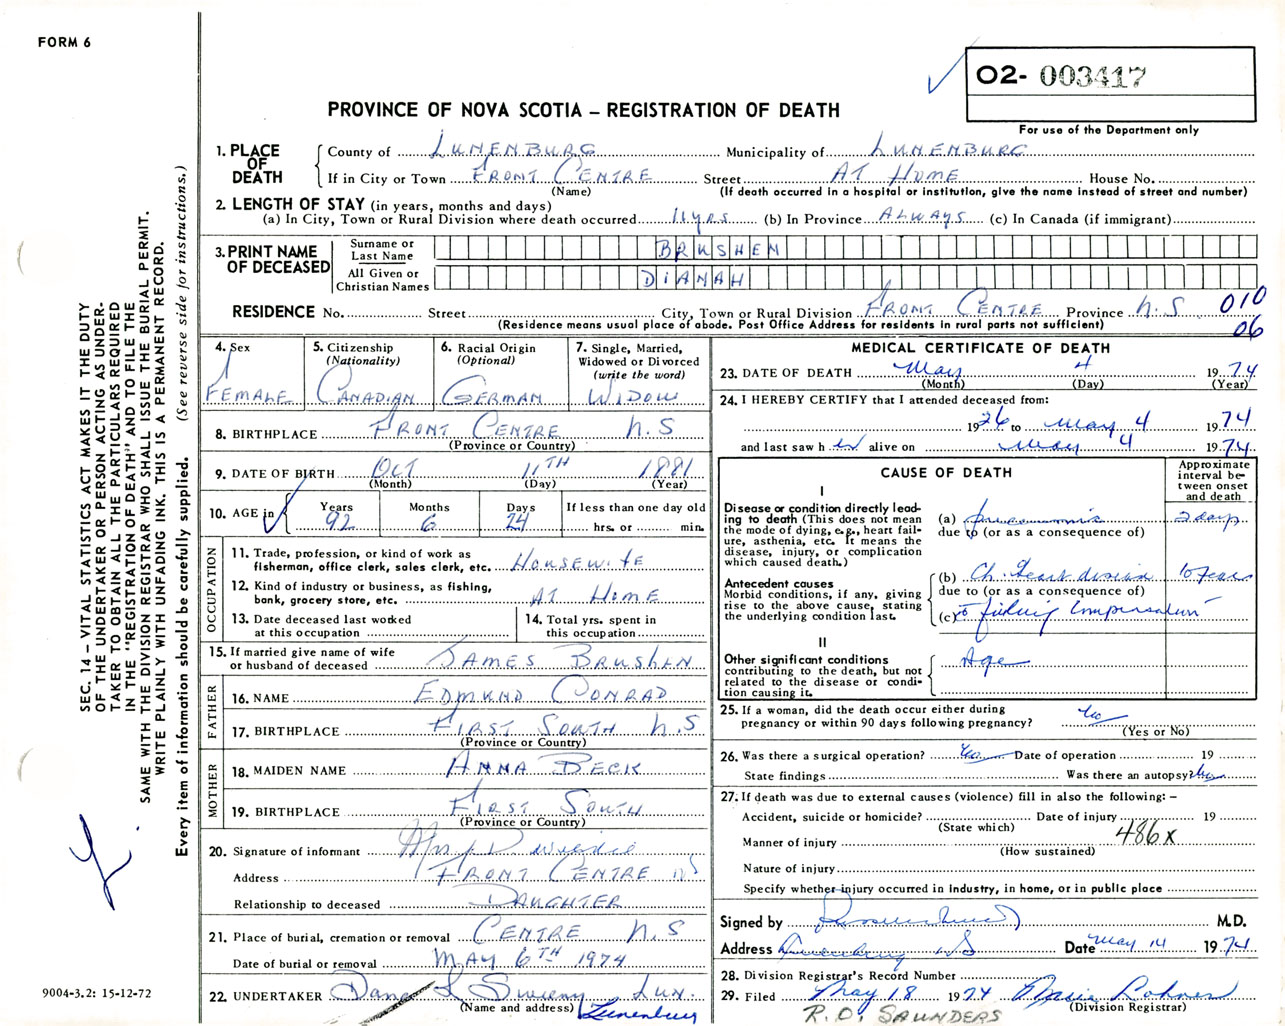 FORM 6
02- 003417
PROVINCE OF NOVA SCOTIA – REGISTRATION OF DEATH
For use of the Department only
1. PLACE OF DEATH
County of LUNENBURG Municipality of LUNENBURG
If in City or Town FRONT CENTRE Street AT HOME House No.
(Name) (If death occurred in a hospital or institution, give the name instead of street and number)
2. LENGTH OF STAY (in years, months and days)
(a) In City, Town or Rural Division where death occurred 11 yrs (b) In Province ALWAYS (c) In Canada (if immigrant)
3. PRINT NAME OF DECEASED
Surname or Last Name BRUSHEN
All Given or Christian Names DIANAH
RESIDENCE No. Street City, Town or Rural Division FRONT CENTRE Province N.S 010
(Residence means usual place of abode. Post Office Address for residents in rural parts not sufficient) 06
4. Sex
FEMALE
5. Citizenship
(Nationality)
CANADIAN
6. Racial Origin
(Optional)
GERMAN
7. Single, Married,
Widowed or Divorced
(write the word)
WIDOW
8. BIRTHPLACE FRONT CENTRE N.S
(Province or Country)
9. DATE OF BIRTH OCT 11TH 1881
(Month) (Day) (Year)
10. AGE in
Years 92
Months 6
Days 24
If less than one day old
hrs. or min.
OCCUPATION
11. Trade, profession, or kind of work as
fisherman, office clerk, sales clerk, etc. HOUSEWIFE
12. Kind of industry or business, as fishing,
bank, grocery store, etc. AT HOME
13. Date deceased last worked
at this occupation
14. Total yrs. spent in
this occupation
15. If married give name of wife
or husband of deceased JAMES BRUSHEN
FATHER
16. NAME EDMUND CONRAD
17. BIRTHPLACE FIRST SOUTH N.S
(Province or Country)
MOTHER
18. MAIDEN NAME ANNA BECK
19. BIRTHPLACE FIRST SOUTH
(Province or Country)
20. Signature of informant Mrs
Address FRONT CENTRE NS
Relationship to deceased DAUGHTER
21. Place of burial, cremation or removal CENTRE N.S
Date of burial or removal MAY 6TH 1974
22. UNDERTAKER Dana L Sweeny Lun.
(Name and address) Lunenburg
MEDICAL CERTIFICATE OF DEATH
23. DATE OF DEATH May 4 1974
(Month) (Day) (Year)
24. I HEREBY CERTIFY that I attended deceased from:
1926 to May 4 1974
and last saw h er alive on May 4 1974
CAUSE OF DEATH
Approximate
interval be-
tween onset
and death
I
Disease or condition directly lead-
ing to death (This does not mean
the mode of dying, e.g., heart fail-
ure, asthenia, etc. It means the
disease, injury, or complication
which caused death.)
(a) pneumonia 2 days
due to (or as a consequence of)
Antecedent causes
Morbid conditions, if any, giving
rise to the above cause, stating
the underlying condition last.
(b) Ch. Heart disease 10 years
due to (or as a consequence of)
(c) failing Compensation
II
Other significant conditions
contributing to the death, but not
related to the disease or condi-
tion causing it.
Age
25. If a woman, did the death occur either during
pregnancy or within 90 days following pregnancy? no
(Yes or No)
26. Was there a surgical operation? Date of operation 19
State findings Was there an autopsy?
27. If death was due to external causes (violence) fill in also the following: –
Accident, suicide or homicide? Date of injury 19
(State which)
Manner of injury 486x
(How sustained)
Nature of injury
Specify whether injury occurred in industry, in home, or in public place
Signed by M.D.
Address Lunenburg NS Date May 14 1974
28. Division Registrar's Record Number
29. Filed May 18 1974 Marie Lohnes
(Division Registrar)
R.O. SAUNDERS
SEC. 14 – VITAL STATISTICS ACT MAKES IT THE DUTY
OF THE UNDERTAKER OR PERSON ACTING AS UNDER-
TAKER TO OBTAIN ALL THE PARTICULARS REQUIRED
IN THE "REGISTRATION OF DEATH" AND TO FILE THE
SAME WITH THE DIVISION REGISTRAR WHO SHALL ISSUE THE BURIAL PERMIT.
WRITE PLAINLY WITH UNFADING INK. THIS IS A PERMANENT RECORD.
Every item of information should be carefully supplied. (See reverse side for instructions.)
9004-3.2: 15-12-72